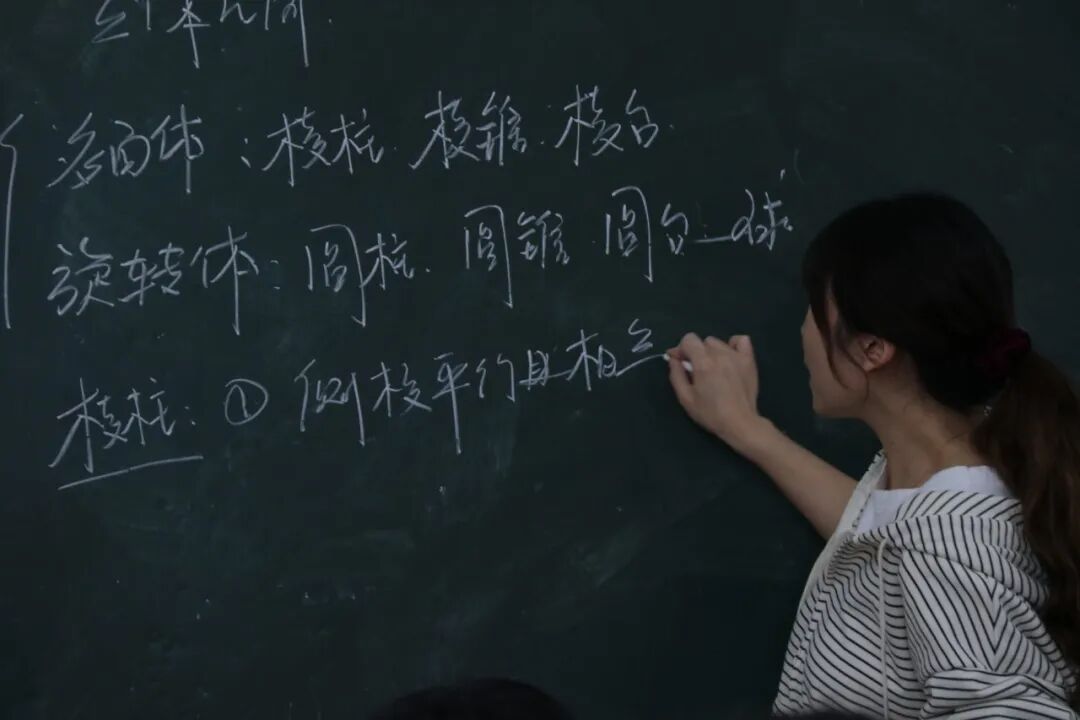 本几何
多面体:棱柱.棱锥.棱台.
旋转体:圆柱.圆锥.圆台.球
棱柱:① 侧棱平行且相